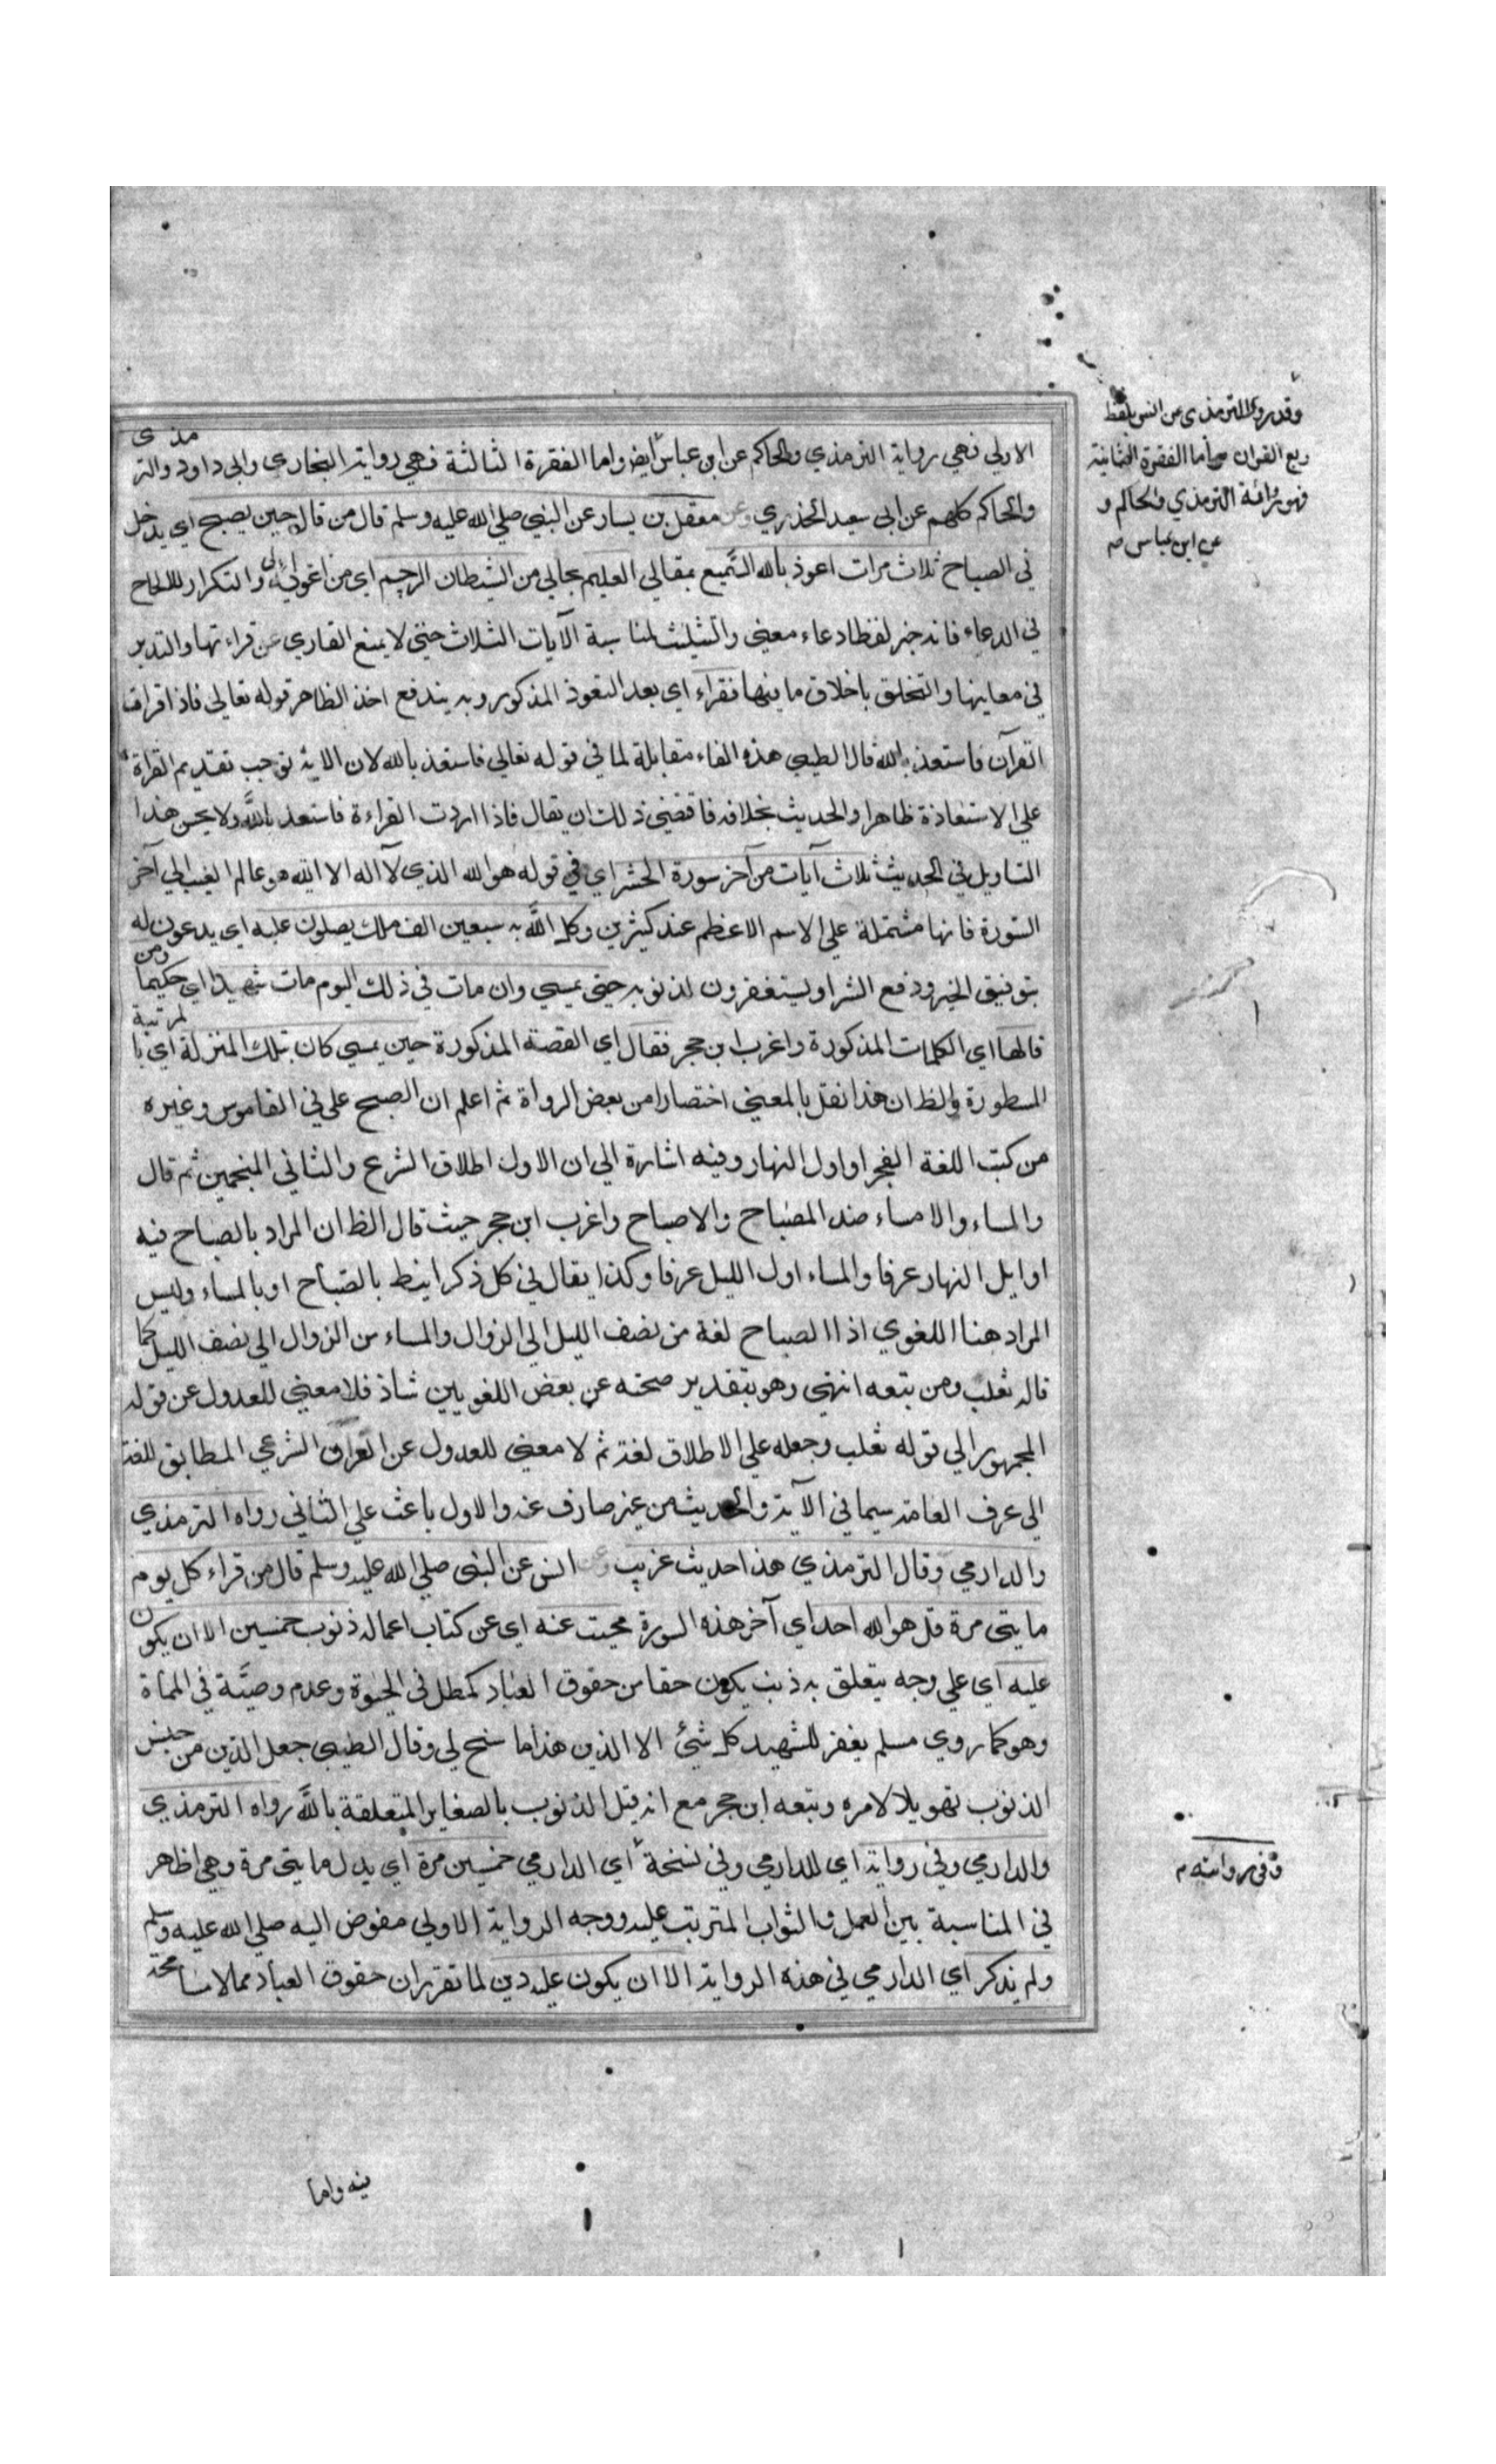 الاولي فهي رواية الترمذي والحاكم عن ابن عباس ايض واما الفقرة الثالثة فهي رواية البخاري وابي داود والترمذي
والحاكم كلهم عن ابي سعيد الخذري وعن معقل بن يسار عن النبي صلي الله عليه وسلم قال من قال حين يصبح اي يدخل
في الصباح ثلاث مرات اعوذ بالله السَّميع بمقالي العليم بحالي من الشيطان الرجيم اي من اغوايه والتكرار للالحاح
في الدعاء فانه خبر لفظا دعاء معني والتثليث لمناسبة الآيات الثلاث حتي لا يمنع القاري عن قراءتها والتدبر
في معاينها والتخلق باخلاق ما فيها فقراء اي بعد التعوذ المذكور وبه يندفع اخذ الظاهر قوله تعالي فاذا قرات
القرآن فاستعذ بالله قال الطيبي هذه الفاء مقابلة لما في قوله تعالي فاستعذ بالله لان الاية توجب تقديم القراة
علي الاستعاذة ظاهرا والحديث بخلافه فاقتضي ذلك ان يقال فاذا اردت القراءة فاستعذ بالله ولا يحسن هذا
التاويل في الحديث ثلاث آيات من آخر سورة الحشر اي في قوله هو الله الذي لا اله الا الله هو عالم الغيب الي آخر
السّورة فانها مشتملة علي الاسم الاعظم عند كثيرين وكل اللَّه به سبعين الف ملك يصلون عليه اي يدعون له
بتوفيق الخير ودفع الشر او يستغفرون لذنوبه حتي يمسي وان مات في ذلك اليوم مات شهيدا اي حكيما ومن
قالها اي الكلمات المذكورة واغرب ابن حجر فقال اي القصة المذكورة حين يمسي كان بتلك المنزلة اي بالمرتبة
المسطورة والظ ان هذا نقل بالمعني اختصارا من بعض الرواة ثم اعلم ان الصبح علي في القاموس وغيره
من كتب اللغة الفجر او اول النهار وفيه اشارة الي ان الاول اطلاق الشرع والثاني المنجمين ثم قال
والمساء والامساء ضد المصباح والاصباح واغرب ابن حجر حيث قال الظ ان المراد بالصباح فيه
اوايل النهار عرفا والمساء اول الليل عرفا وكذا يقال في كل ذكر اينط بالصّباح او بالمساء وليس
المراد هنا اللغوي اذا الصباح لغة من نصف الليل الي الزوال والمساء من الزوال الي نصف الليل كما
قاله ثعلب ومن تبعه انتهي وهو بتقدير صحته عن بعض اللغويين شاذ فلا معني للعدول عن قوله
المجمهور الي قوله ثعلب وجعله علي الاطلاق لغة ثم لا معني للعدول عن العراق الشرعي المطابق للغة
الي عرف العامة سيما في الآية والحديث من غير صارف عنه والاول باعث علي الثاني رواه الترمذي
والدارمي وقال الترمذي هذا حديث غريب وعن انس عن النبي صلي الله عليه وسلم قال من قراء كل يوم
مايتي مرة قل هو الله احد اي آخر هذه السورة محيت عنه اي عن كتاب اعماله ذنوب خمسين الا ان يكون
عليه اي علي وجه يتعلق به ذنب يكون حقا من حقوق العباد كمطل في الحيوة وعدم وصيَّة في المماة
وهو كما روي مسلم يغفر للشهيد كل شئ الا الدين هذا ما سنح لي وقال الطيبي جعل الدين من جنس
الذنوب تهويلا لامره وتبعه ابن حجر مع انه قيل الذنوب بالصغاير المتعلقة باللَّه رواه الترمذي
والدارمي وفي رواية اي للدارمي وفي نسخة اي الدارمي خمسين مرة اي بدل مايتي مرة وهي اظاهر
في المناسبة بين العمل والثواب المترتب عليه ووجه الرواية الاولي مفوض اليه صلي الله عليه وسلم
ولم يذكر اي الدارمي في هذه الرواية الا ان يكون عليه دين لما تقرر ان حقوق العباد مما لا مسامحة
وقد روي الترمذي عن انس بلفظ
ربع القران واما الفقرة الثانية
فهو رواية الترمذي والحاكم و
عن ابن عباس
وفي روايته
فيه واما